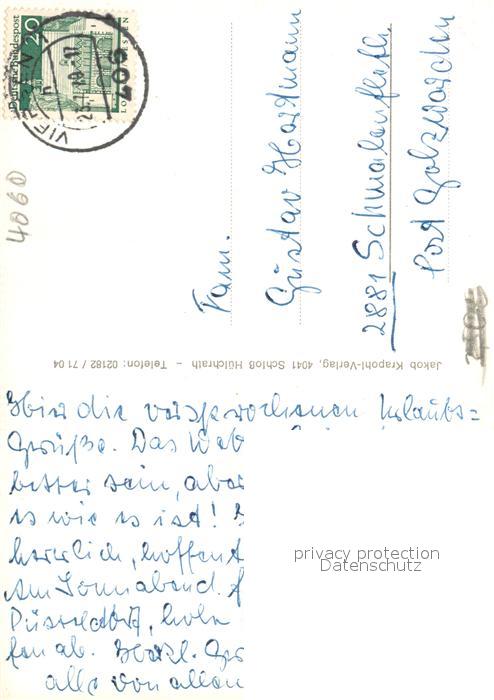 Deutsche Bundespost
20
VIERSEN
907
4060
Fam.
Gustav Hartmann
2881 Schmalenfleth
Post Golzwarden
Jakob Krapohl-Verlag, 4041 Schloß Hülchrath – Telefon: 02182 / 71 04
Hier die versprochenen Urlaubs=
Grüße. Das Wet
besser sein, aber
es wie es ist!
herrlich, hoffent
Am Sonnabend.
Düsseldorf, hole
fen ab. Herzl. Grü
alle von allen
privacy protection
Datenschutz